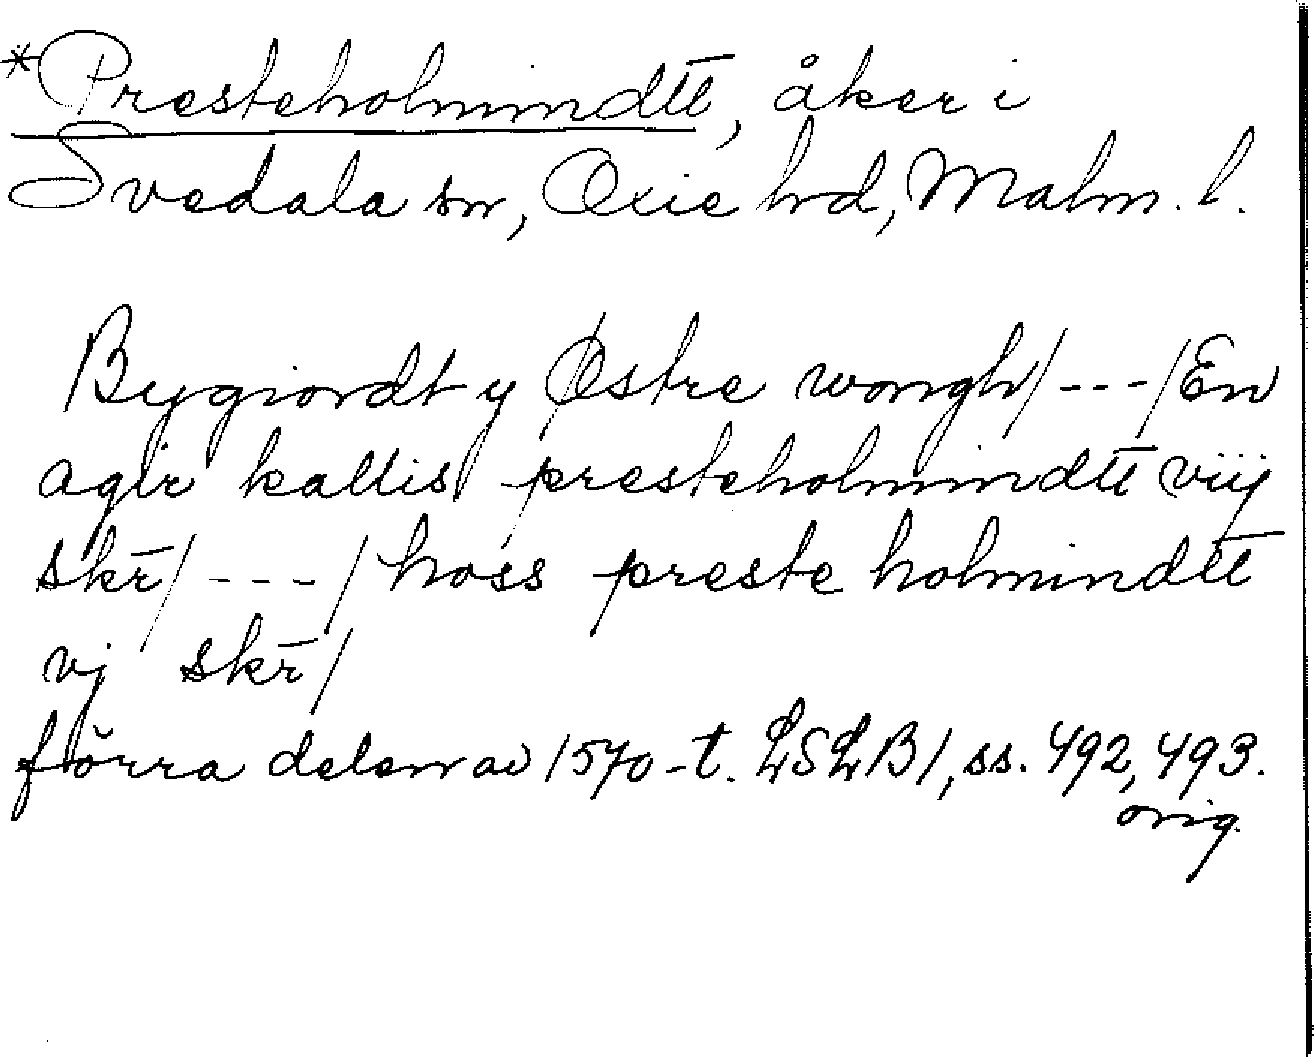 *Presteholmindtt̅, åker i
Svedala sn, Oxie hd, Malm. l.
Bygiordt y Østre wongh/---/En
agir kallis presteholmindtt̅ viij
skr̅/---/hoss preste holmindtt̅
vj skr̅/
förra delen av 1570-t. LSLB1, ss. 492, 493.
orig.